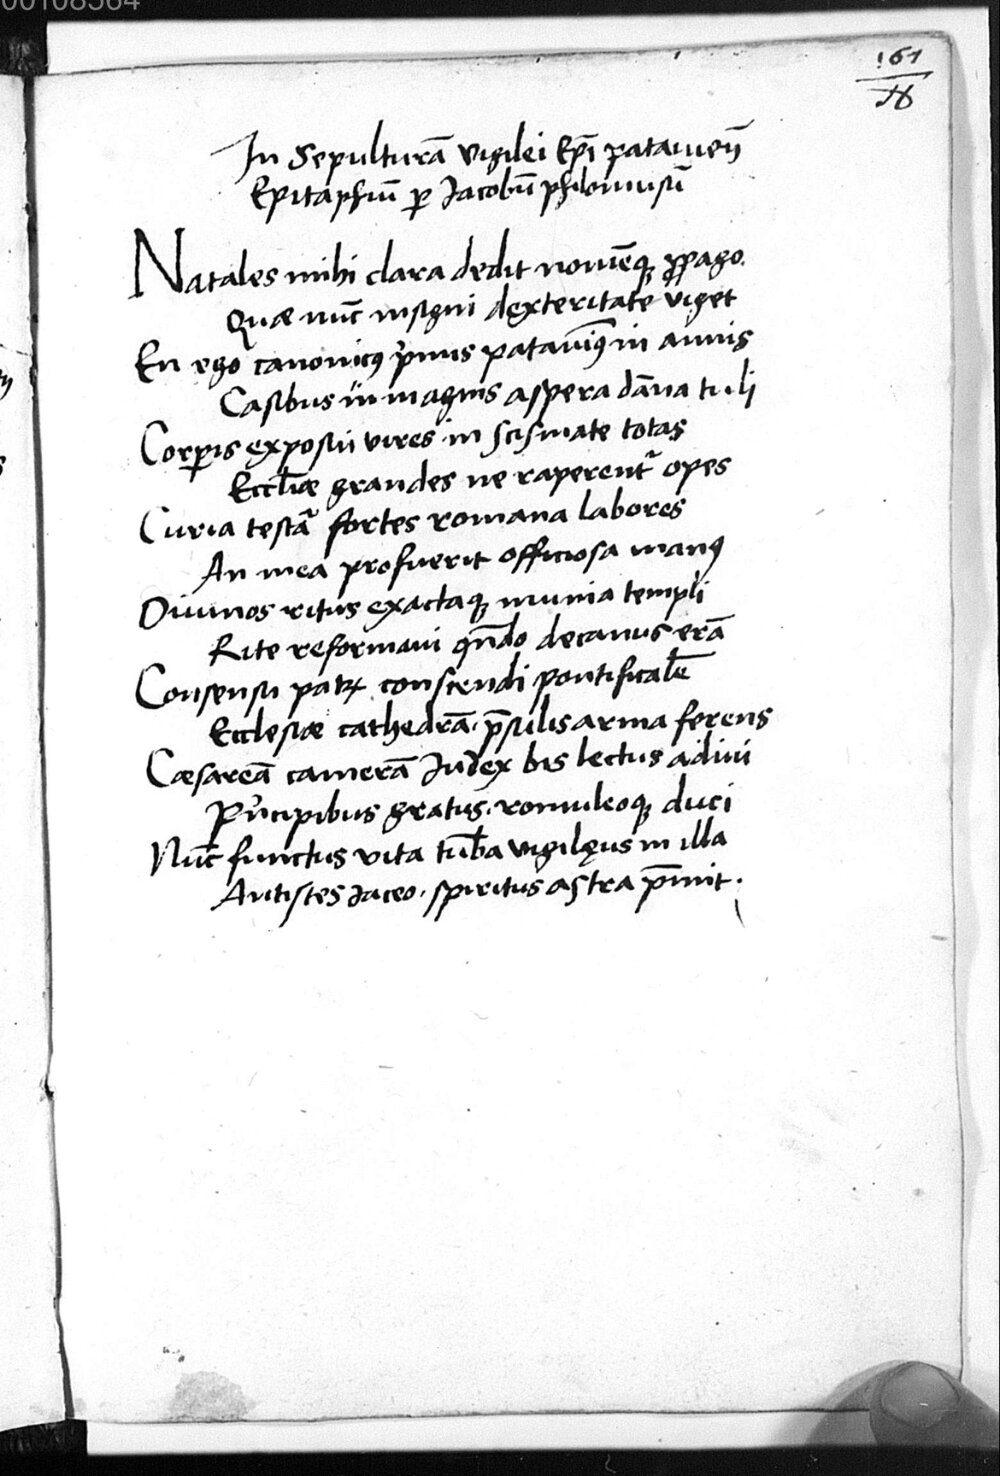 00108564
161
In Sepulturā Vigilei Ep̄i pataviēn̄
Epitaphiū ꝑ Jacobū philomusū
Natales mihi clara dedit nomēqꝫ ꝓpago.
Quæ nūc insigni dexteritate viget
En ego canonicꝰ p̍mus pataviēsꝰ in annis
Casibus in magnis aspera dāna tuli
Corꝑis exposui vires in scismate totas
Eccl̄iæ grandes ne raperent᷑ opes
Curia testat᷑ fortes romana labores
An mea profuerit officiosa manꝰ
Divinos ritus exactaqꝫ munia templi
Rite reformavi qn̄do decanus erā
Consensu patrꝝ conscendi pontificalē
Ecclesiæ cathedrā. p̄sulis arma ferens
Cæsareā camerā Judex bis lectus adivi
Pr̍ncipibus gratus. romuleoqꝫ duci
Nūc functus vita tūba vigilęus in illa
Antistes iaceo. spiritus astra p̄mit.